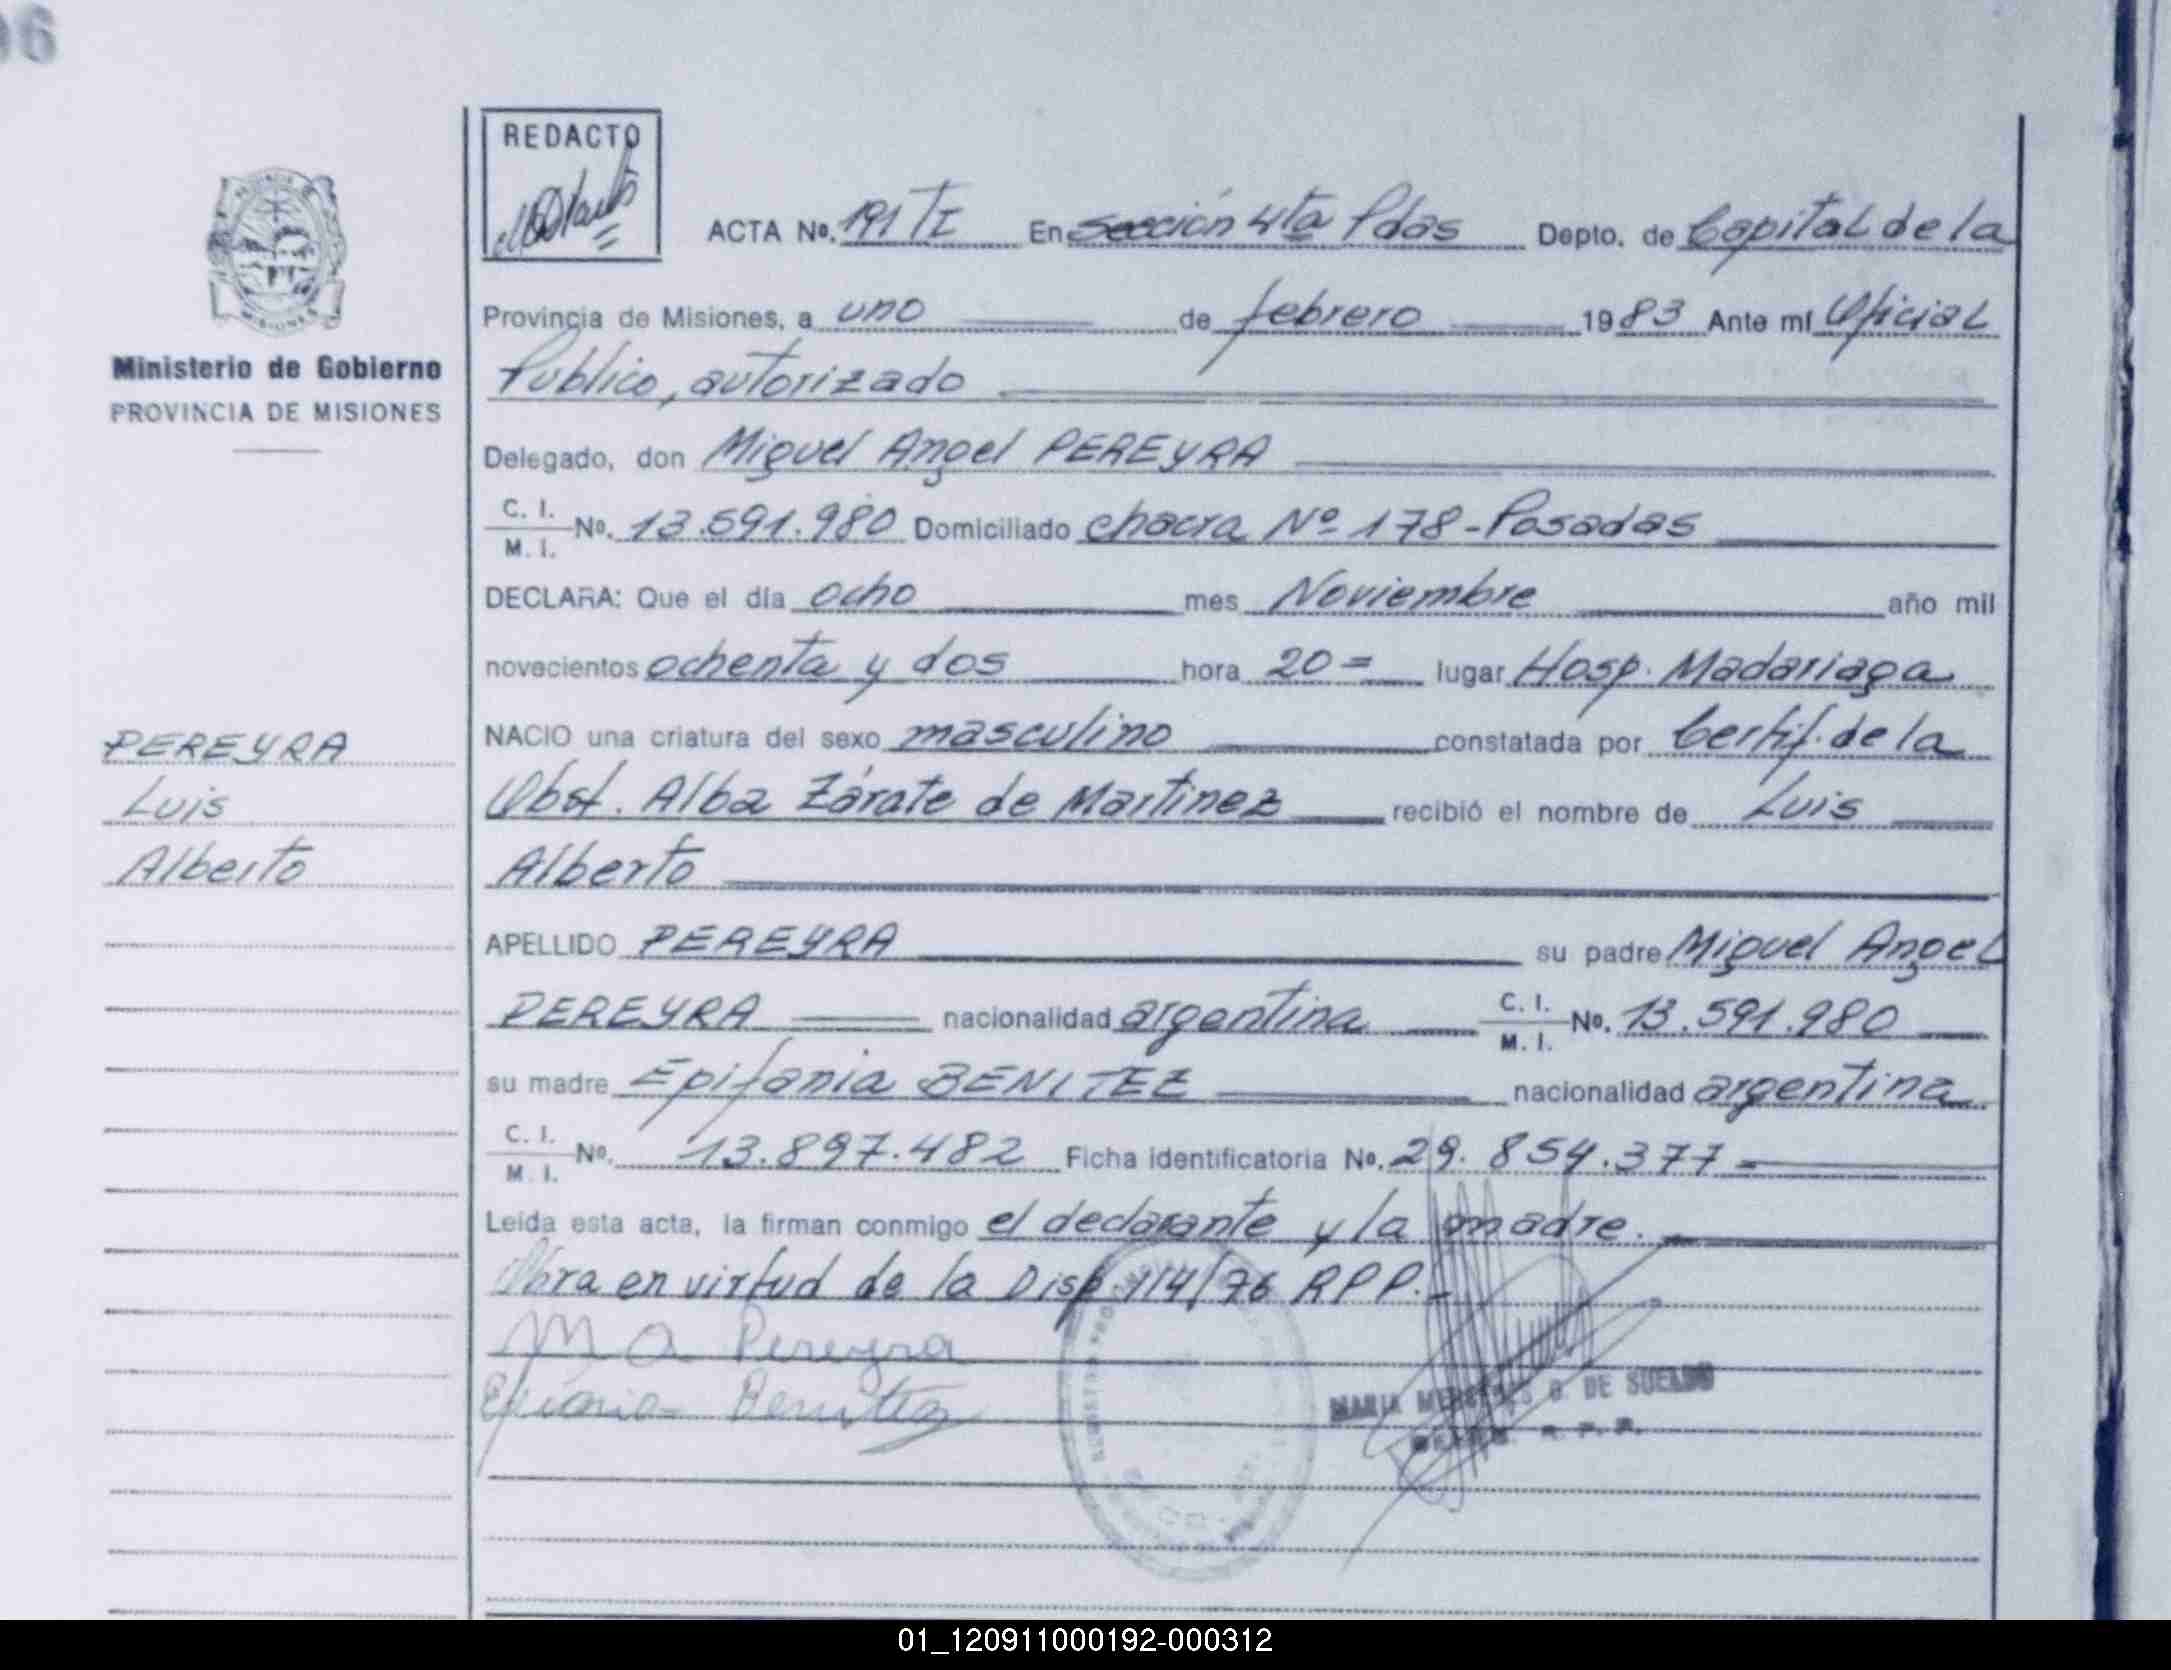 96
REDACTO
ACTA No. 191 TI En sección 4ta Pdas Depto. de Capital de la
Provincia de Misiones, a uno de febrero 1983 Ante mí Oficial
Público, autorizado
Ministerio de Gobierno
PROVINCIA DE MISIONES
Delegado, don Miguel Angel PEREYRA
C. I.
M. I. No. 13.591.980 Domiciliado chacra Nº 178-Posadas
DECLARA: Que el día ocho mes Noviembre año mil
novecientos ochenta y dos hora 20= lugar Hosp. Madariaga
NACIO una criatura del sexo masculino constatada por Certif. de la
Obst. Alba Zárate de Martinez recibió el nombre de Luis
Alberto
PEREYRA
Luis
Alberto
APELLIDO PEREYRA su padre Miguel Angel
PEREYRA nacionalidad argentina C. I.
M. I. No. 13.591.980
su madre Epifania BENITEZ nacionalidad argentina
C. I.
M. I. No. 13.897.482 Ficha identificatoria No. 29.854.377
Leída esta acta, la firman conmigo el declarante y la madre.
Obra en virtud de la Disp 114/76 RPP.-
M A Pereyra
Epifania Benitez
MARIA MERCEDES G. DE SUELDO
R. P. P.
01_120911000192-000312